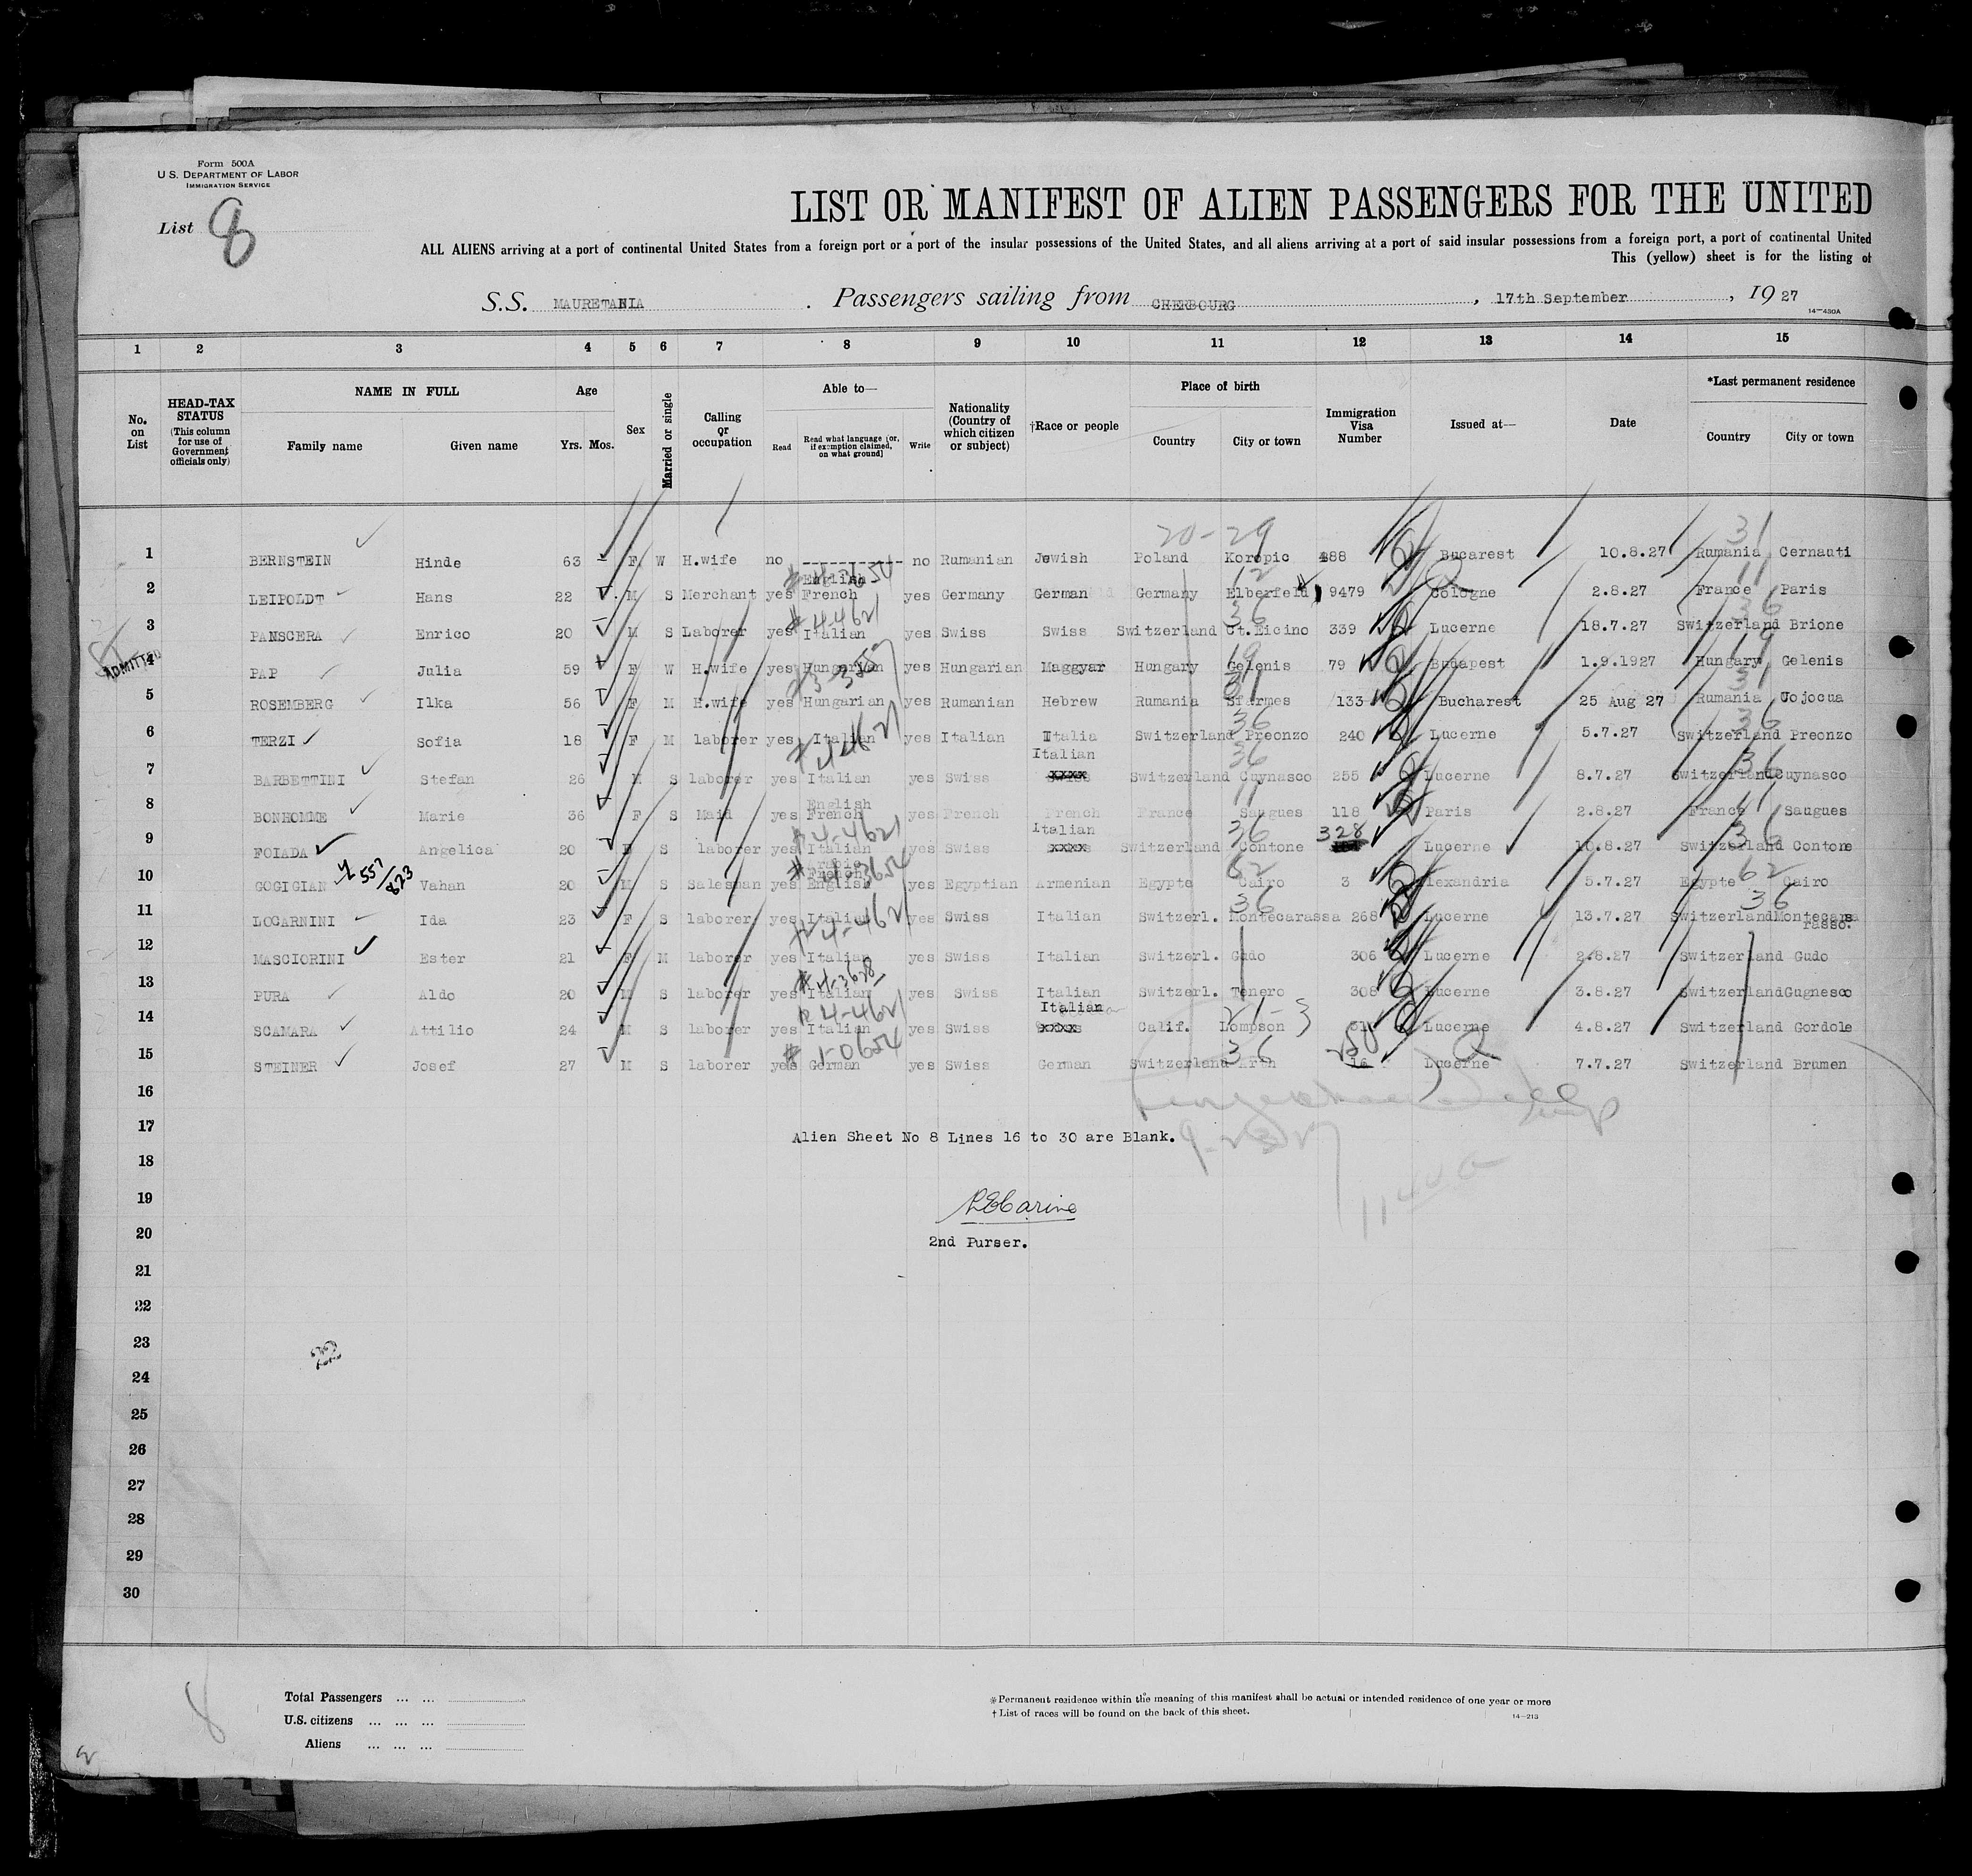 Form 500A
U.S. DEPARTMENT OF LABOR
IMMIGRATION SERVICE
List 8
LIST OR MANIFEST OF ALIEN PASSENGERS FOR THE UNITED
ALL ALIENS arriving at a port of continental United States from a foreign port or a port of the insular possessions of the United States, and all aliens arriving at a port of said insular possessions from a foreign port, a port of continental United
This (yellow) sheet is for the listing of
S.S. MAURETANIA. Passengers sailing from CHERBOURG, 17th September, 1927
14-430A
1 2 3 4 5 6 7 8 9 10 11 12 13 14 15
No. on List
HEAD-TAX STATUS (This column for use of Government officials only)
NAME IN FULL
Family name Given name
Age
Yrs. Mos.
Sex
Married or single
Calling or occupation
Able to—
Read
Read what language (or, if exemption claimed, on what ground)
Write
Nationality (Country of which citizen or subject)
†Race or people
Place of birth
Country City or town
Immigration Visa Number
Issued at—
Date
*Last permanent residence
Country City or town
20-29 31
1 BERNSTEIN Hinde 63 F W H.wife no ------------ no Rumanian Jewish Poland Koropic 488 Bucarest 10.8.27 Rumania Cernauti
English 12 11
2 LEIPOLDT Hans 22 M S Merchant yes French yes Germany German Germany Elberfeld 9479 Cologne 2.8.27 France Paris
# 4-4621 36 36
3 PANSCERA Enrico 20 M S Laborer yes Italian yes Swiss Swiss Switzerland Ct.Eicino 339 Lucerne 18.7.27 Switzerland Brione
ADMITTED 19 19
4 PAP Julia 59 F W H.wife yes Hungarian yes Hungarian Maggyar Hungary Gelenis 79 Budapest 1.9.1927 Hungary Gelenis
31 31
5 ROSEMBERG Ilka 56 F M H.wife yes Hungarian yes Rumanian Hebrew Rumania Sfarmes 133 Bucharest 25 Aug 27 Rumania Uojocua
# 4-4621 36 36
6 TERZI Sofia 18 F M laborer yes Italian yes Italian Italia Switzerland Preonzo 240 Lucerne 5.7.27 Switzerland Preonzo
Italian 36 36
7 BARBETTINI Stefan 26 M S laborer yes Italian yes Swiss xxxx Switzerland Cuynasco 255 Lucerne 8.7.27 Switzerland Cuynasco
English 11 11
8 BONHOMME Marie 36 F S Maid yes French yes French French France Saugues 118 Paris 2.8.27 France Saugues
4-4621 Italian 36 328 36
9 FOIADA Angelica 20 F S laborer yes Italian yes Swiss xxxx Switzerland Contone Lucerne 10.8.27 Switzerland Contone
557/823 Arabic French 62 62
10 GOGIGIAN Vahan 20 M S Salesman yes English yes Egyptian Armenian Egypte Cairo 3 Alexandria 5.7.27 Egypte Cairo
36 36
11 LOCARNINI Ida 23 F S laborer yes Italian yes Swiss Italian Switzerl. Montecarassa 268 Lucerne 13.7.27 Switzerland Montecara
rasso.
4-4621
12 MASCIORINI Ester 21 F M laborer yes Italian yes Swiss Italian Switzerl. Gudo 306 Lucerne 2.8.27 Switzerland Gudo
# 4-3628
13 PURA Aldo 20 M S laborer yes Italian yes Swiss Italian Switzerl. Tenero 308 Lucerne 3.8.27 Switzerland Gugnesco
4-4621 Italian 21-3
14 SCAMARA Attilio 24 M S laborer yes Italian yes Swiss xxxx Calif. Lompson Lucerne 4.8.27 Switzerland Gordole
# 1-0654 36 250
15 STEINER Josef 27 M S laborer yes German yes Swiss German Switzerland Arth 16 Lucerne 7.7.27 Switzerland Brumen
16
17 Alien Sheet No 8 Lines 16 to 30 are Blank.
18
19
20 2nd Purser.
21
22
23
24
25
26
27
28
29
30
8
Total Passengers ... ...
U.S. citizens ... ... ...
Aliens ... ... ...
*Permanent residence within the meaning of this manifest shall be actual or intended residence of one year or more
†List of races will be found on the back of this sheet.
14-213